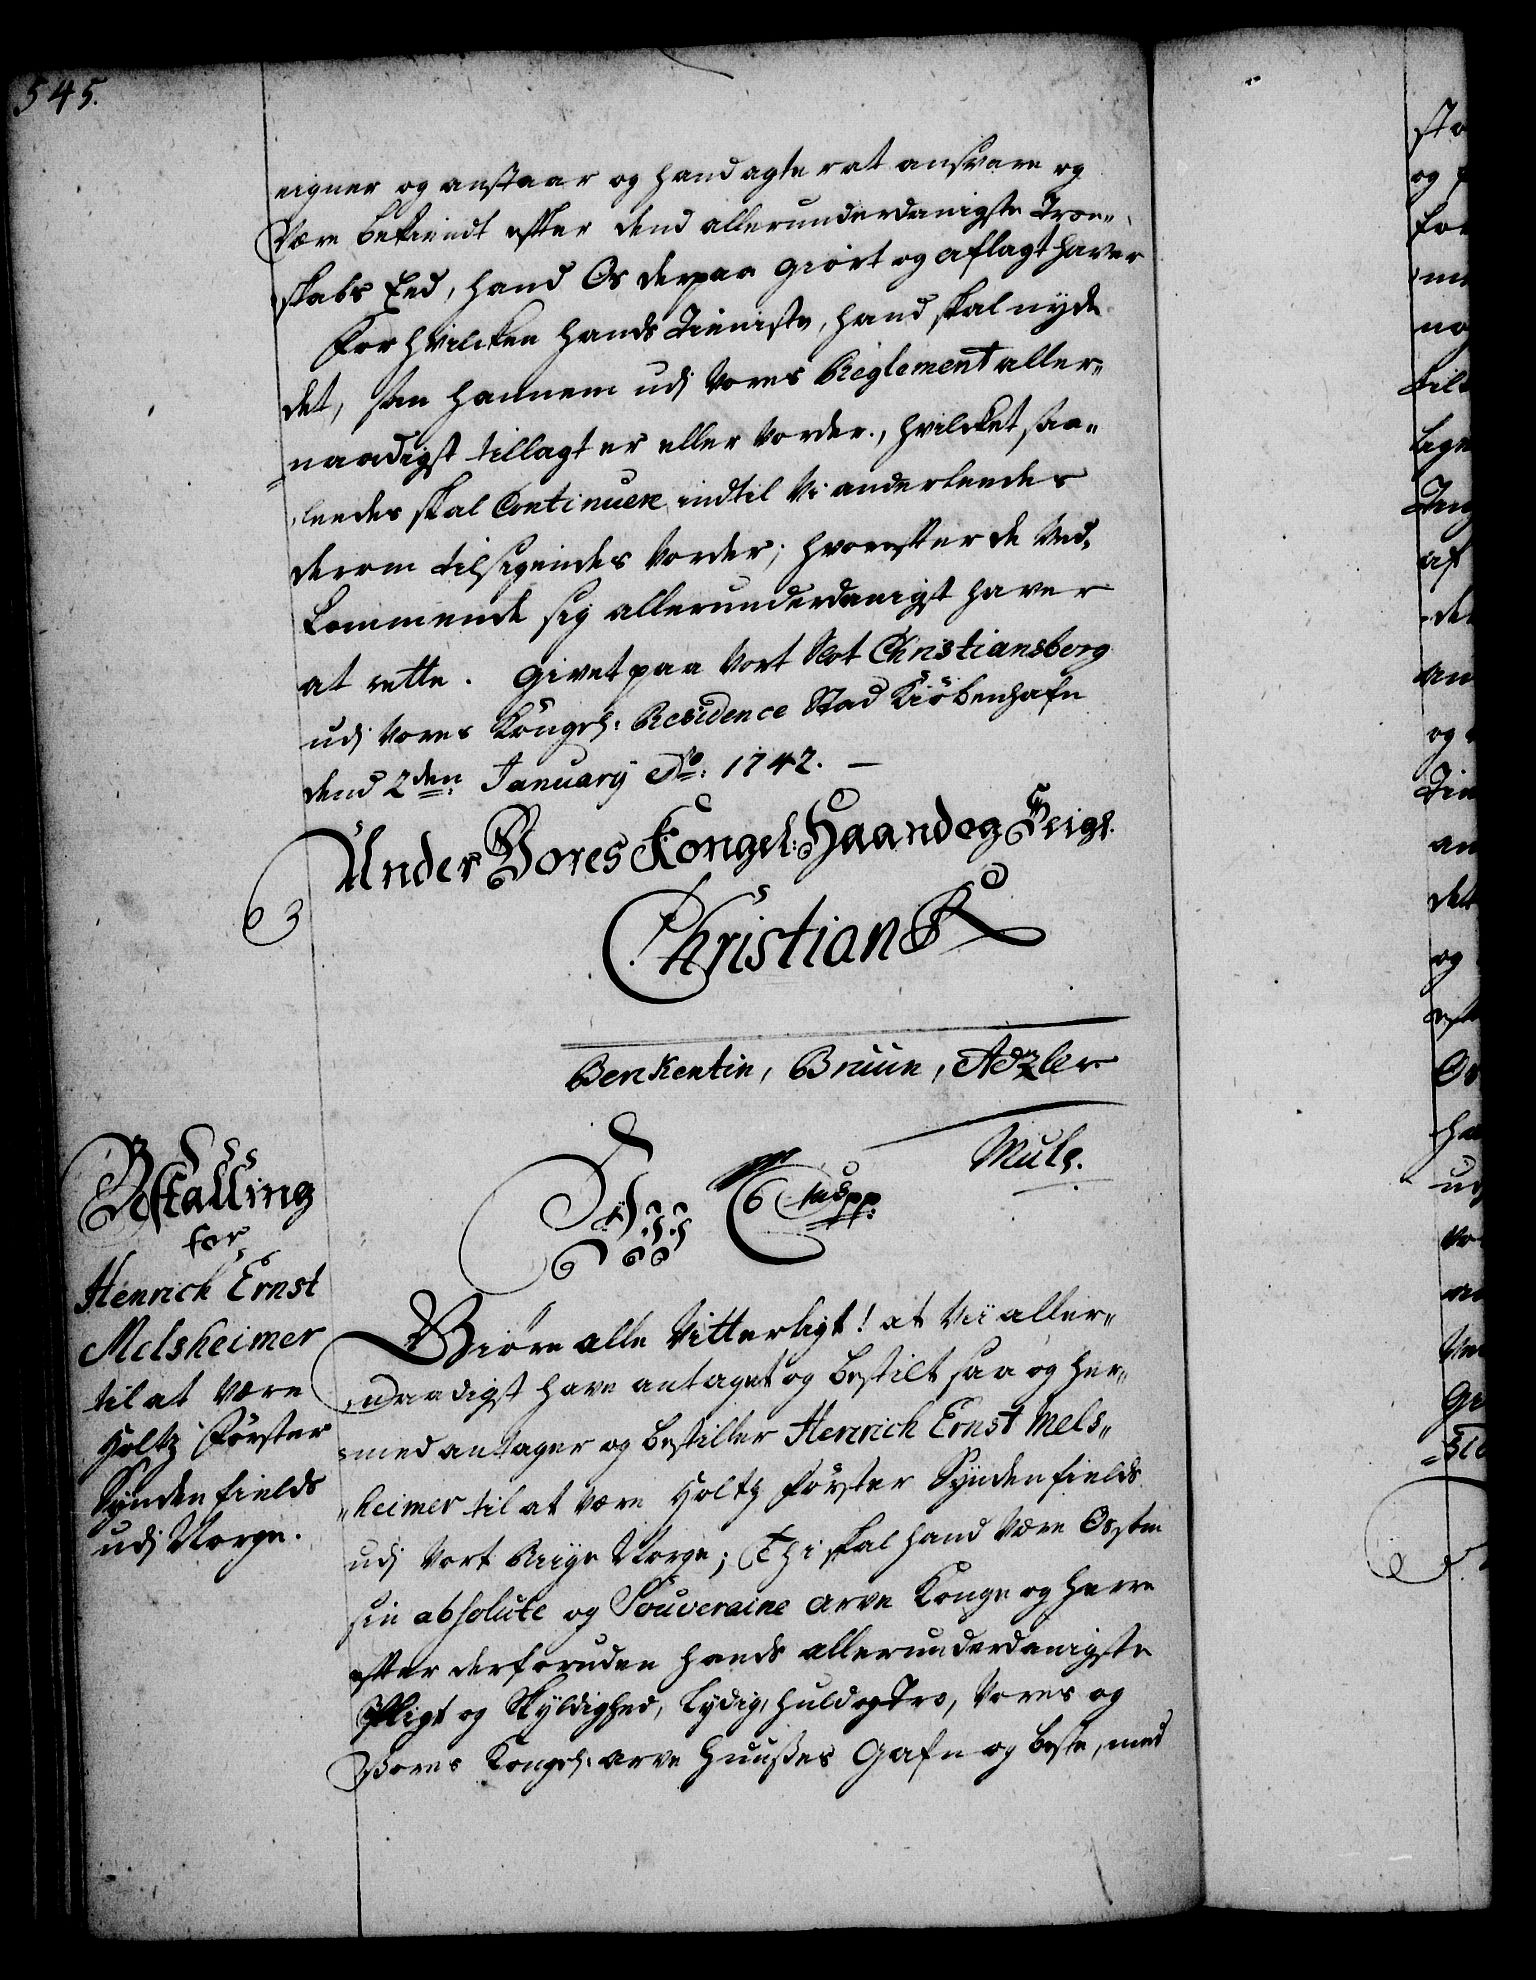 545.
eigner og anstaar og hand agter at ansvare og
Være bekiendt efter dend allerunderdanigste Troe„
skabs Eed, hand Os derpaa giort og aflagt haver
For hvilcken hands Tieniste, hand skal nyde
det, som hannem udj Vores Reglement aller„
naadigst tillagt er eller Vorder, hvilcket saa„
„leedes skal Continuere indtil Vi anderleedes
derom tilsigendes Vorder; hvorefter de Ved„
kommende sig allerunderdanigst haver
at rette. Givet paa Vort Slot Christiansberg
udj Vores Kongel: Residence Stad Kiöbenhafn
dend 2den January Ao: 1742. –
Under Vores Kongel: Haand og Seigl.
Christian R
Berkentin, Bruun, Adzler
Mule.
Bestalling
for
Henrich Ernst
Melsheimer
til at Være
Holtz Förster
Synden fields
udj Norge.
Giöre alle Vitterligt! at Vii aller„
„naadigst have antaget og bestilt saa og her„
„med antager og bestiller Henrich Ernst Mels„
„heimer til at være Holtz Förster Synden fields
udj Vort Riige Norge; Thi skal hand Være Os som
sin absolute og Souveraine arve Konge og Herre
efter derforuden hands allerunderdanigste
Pligt og Skyldighed, Lydig, huld og Tro, Vores og
Vores Kongel: arve Huuses Gafn og beste, med